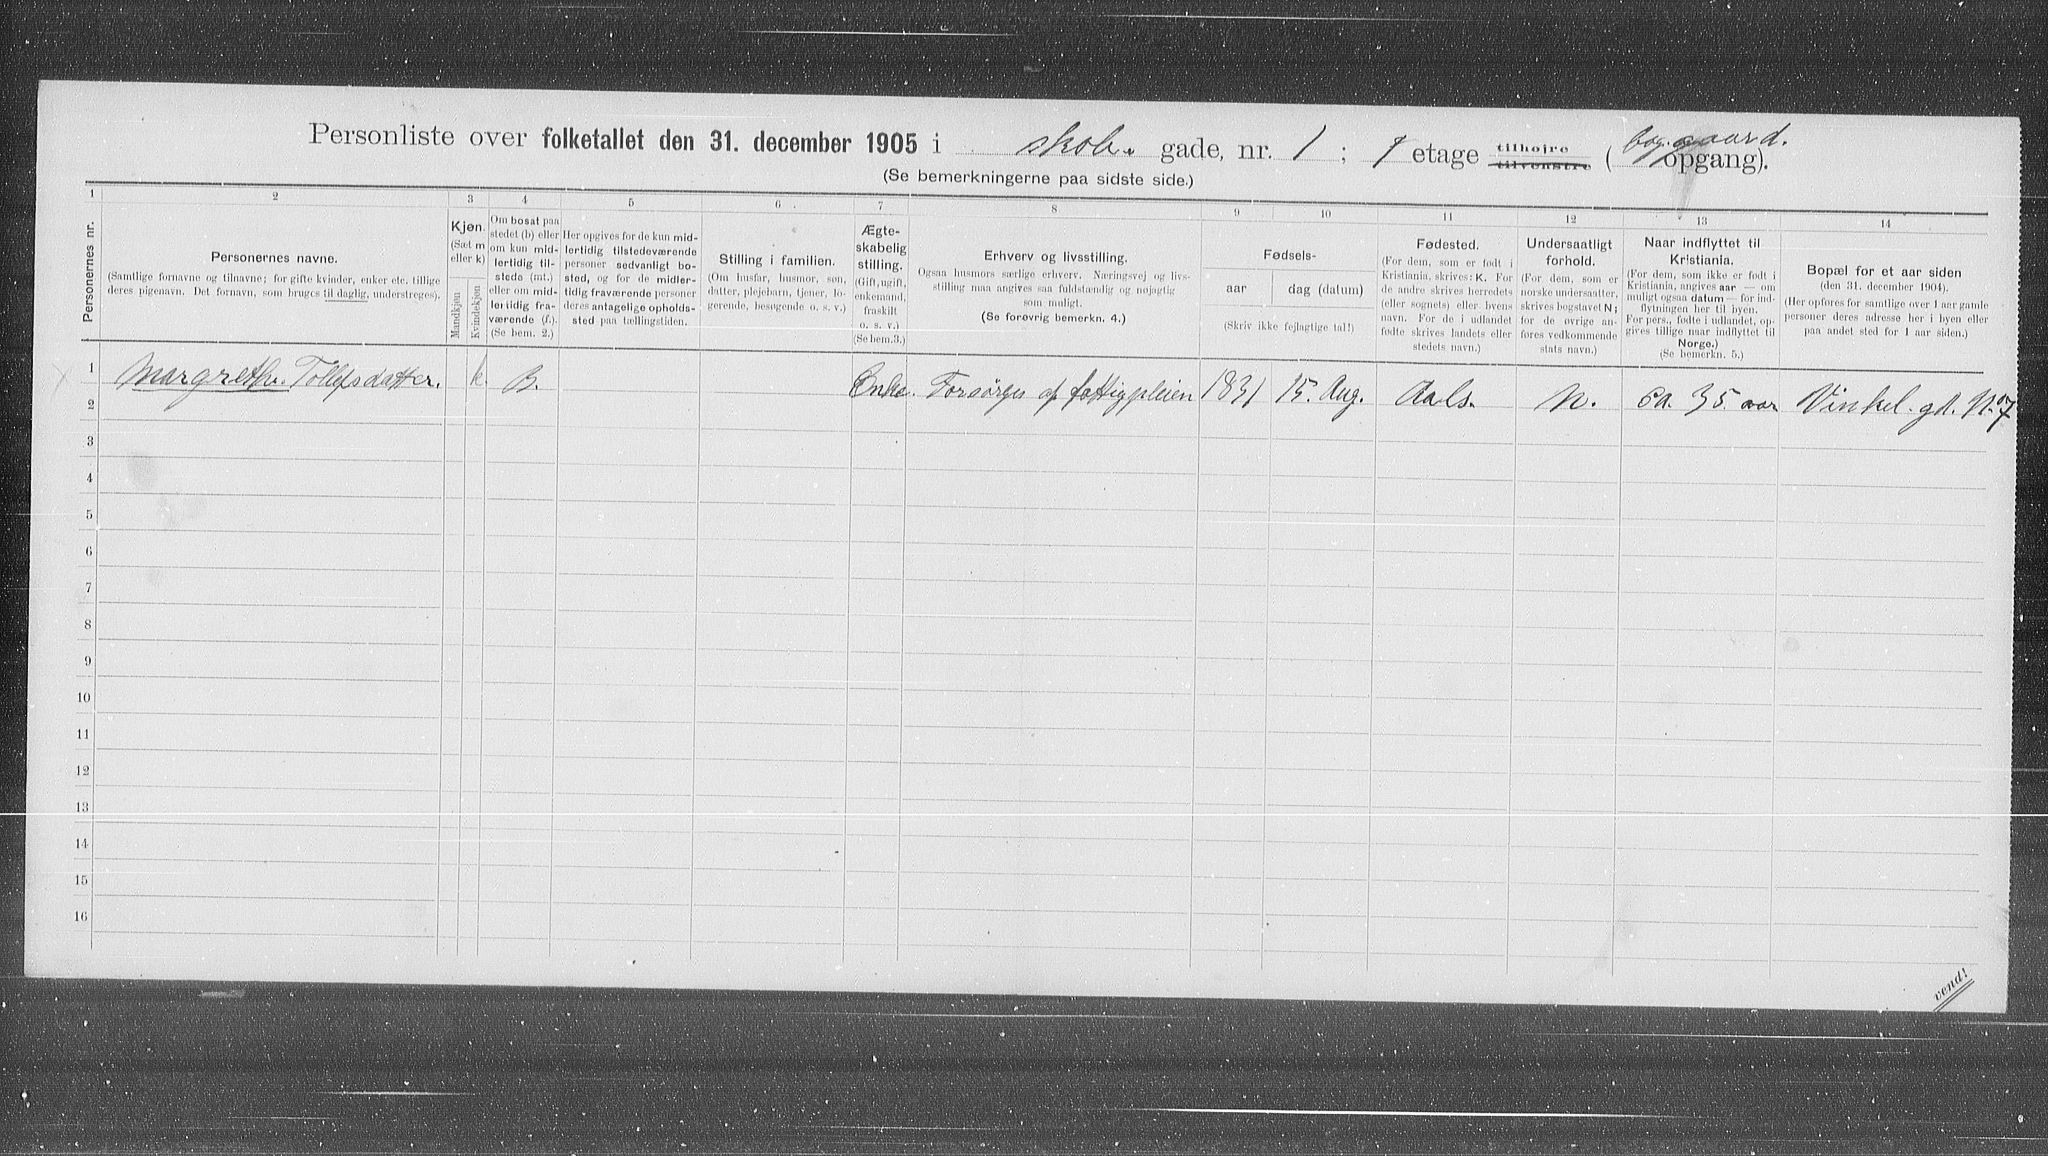 Personliste over folketallet den 31. december 1905 i skob. gade, nr. 1 ; 1 etage tilhøjre tilvenstre ( baggaard. opgang).
(Se bemerkningerne paa sidste side.)
1 2 3 4 5 6 7 8 9 10 11 12 13 14
Personernes nr.
Personernes navne.
(Samtlige fornavne og tilnavne; for gifte kvinder, enker etc. tillige
deres pigenavn. Det fornavn, som bruges til daglig, understreges).
Kjøn.
(Sæt m
eller k)
Mandkjøn
Kvindekjøn
Om bosat paa
stedet (b) eller
om kun mid-
lertidig til-
stede (mt.)
eller om mid-
lertidig fra-
værende (f.).
(Se bem. 2.)
Her opgives for de kun mid-
lertidig tilstedeværende
personer sedvanligt bo-
sted, og for de midler-
tidig fraværende personer
deres antagelige opholds-
sted paa tællingstiden.
Stilling i familien.
(Om husfar, husmor, søn,
datter, plejebarn, tjener, lo-
gerende, besøgende o. s. v.)
Ægte-
skabelig
stilling.
(Gift, ugift,
enkemand,
fraskilt
o. s. v.)
(Se bem.3.)
Erhverv og livsstilling.
Ogsaa husmors særlige erhverv. Næringsvej og livs-
stilling maa angives saa fuldstændig og nøjagtig
som muligt.
(Se forøvrig bemerkn. 4.)
Fødsels-
aar
dag (datum)
(Skriv ikke fejlagtige tal!)
Fødested.
(For dem, som er født i
Kristiania, skrives: K. For
de andre skrives herredets
(eller sognets) eller byens
navn. For de i udlandet
fødte skrives landets eller
stedets navn.)
Undersaatligt
forhold.
(For dem, som er
norske undersaatter,
skrives bogstavet N;
for de øvrige an-
føres vedkommende
stats navn.)
Naar indflyttet til
Kristiania.
(For dem, som ikke er født i
Kristiania, angives aar — om
muligt ogsaa datum — for ind-
flytningen her til byen.
For pers., født i udlandet, op-
gives tillige naar indflyttet til
Norge.)
(Se bemerkn. 5.)
Bopæl for et aar siden
(den 31. december 1904).
(Her opføres for samtlige over 1 aar gamle
personer deres adresse her i byen eller
paa andet sted for 1 aar siden.)
1 Margrethe Tollefsdatter. k. B. Enke. Forsørges af fattigpleien 1831 15. Aug. Aals. N. ca. 35. aar Vinkel. gd. No 7
2
3
4
5
6
7
8
9
10
11
12
13
14
15
16
vend!